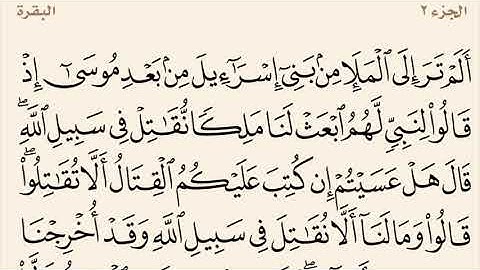 الجزء ٢ البقرة
أَلَمْ تَرَ إِلَى ٱلْمَلَإِ مِنۢ بَنِىٓ إِسْرَٰٓءِيلَ مِنۢ بَعْدِ مُوسَىٰٓ إِذْ
قَالُوا۟ لِنَبِىٍّ لَّهُمُ ٱبْعَثْ لَنَا مَلِكًا نُّقَٰتِلْ فِى سَبِيلِ ٱللَّهِ ۖ
قَالَ هَلْ عَسَيْتُمْ إِن كُتِبَ عَلَيْكُمُ ٱلْقِتَالُ أَلَّا تُقَٰتِلُوا۟ ۖ
قَالُوا۟ وَمَا لَنَآ أَلَّا نُقَٰتِلَ فِى سَبِيلِ ٱللَّهِ وَقَدْ أُخْرِجْنَا